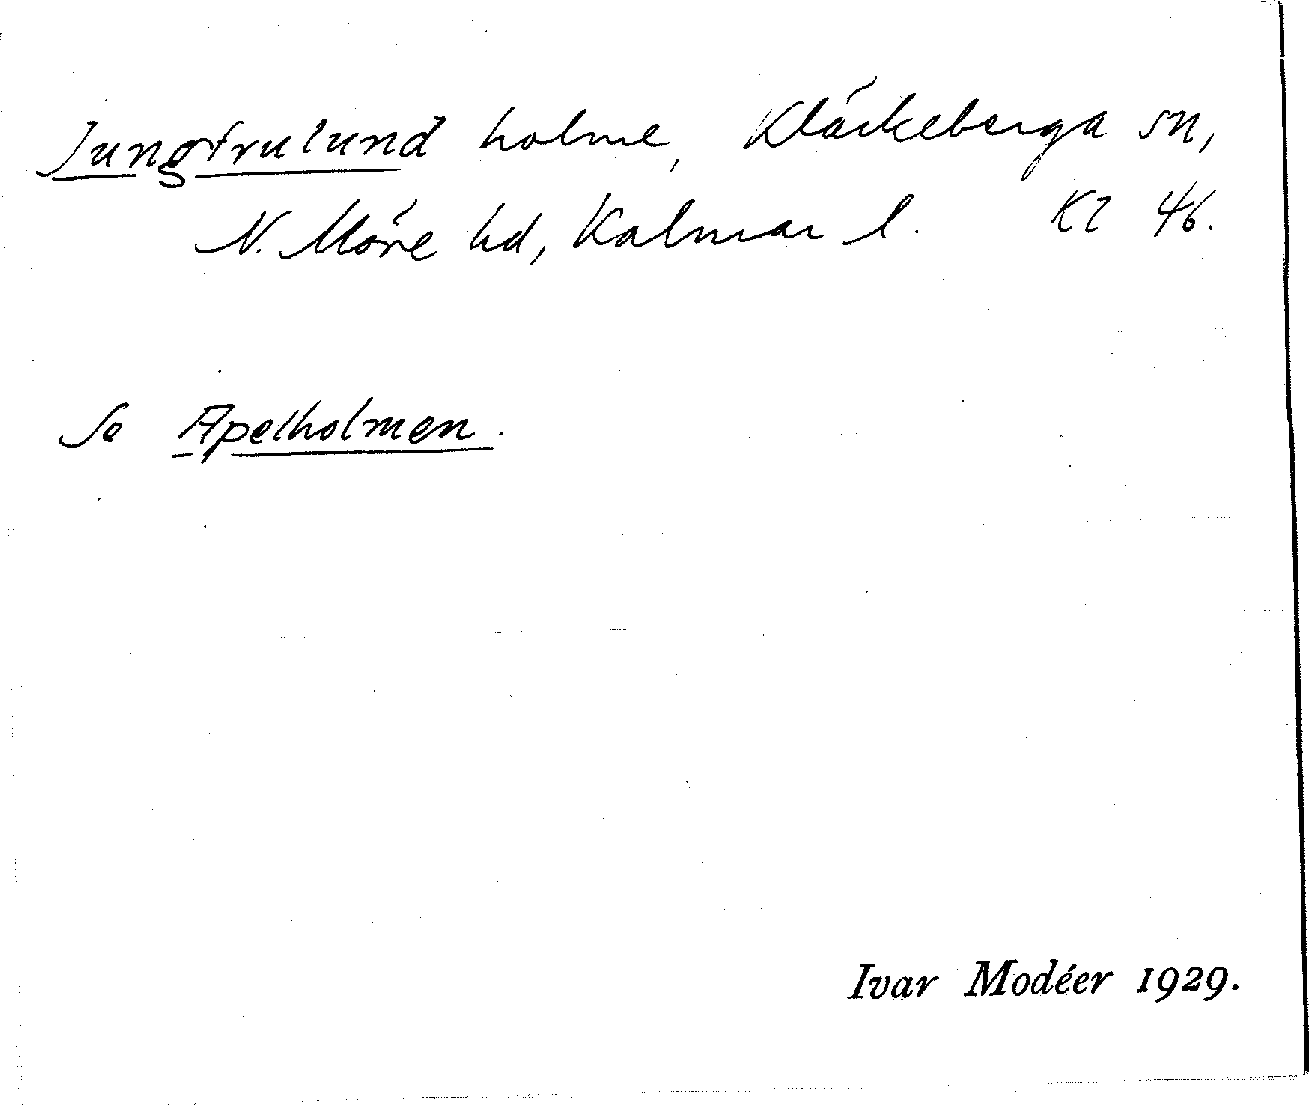 Jungfrulund holme, Kläckeberga sn,
N. Möre hd, Kalmar l. Kl 46.
Se Apelholmen.
Ivar Modéer 1929.